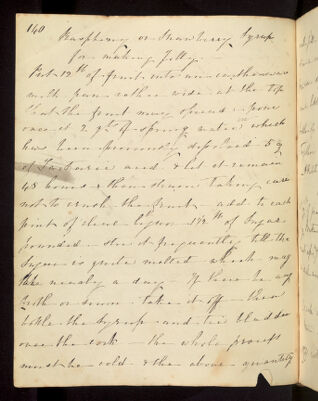 140
Raspberry or Strawberry Syrup
for making Jelly
Put 12 lb of fruit into an earthenware
rather wide at the top
that the fruit may spread - pour
over it 2 Qts of spring water in which
has been previously dissolved 5 oz
of Tartaric acid & let it remain
48 hours & then strain taking care
not to crush the fruit - add to each
pint of clear liquor 1 1/2 lb of Sugar
pounded - stir it frequently till the
Sugar is quite melted which may
take nearly a day - If there be any
froth or scum take it off - then
bottle the Syrup - and tie bladder
over the cork - the whole process
must be cold & the above quantity